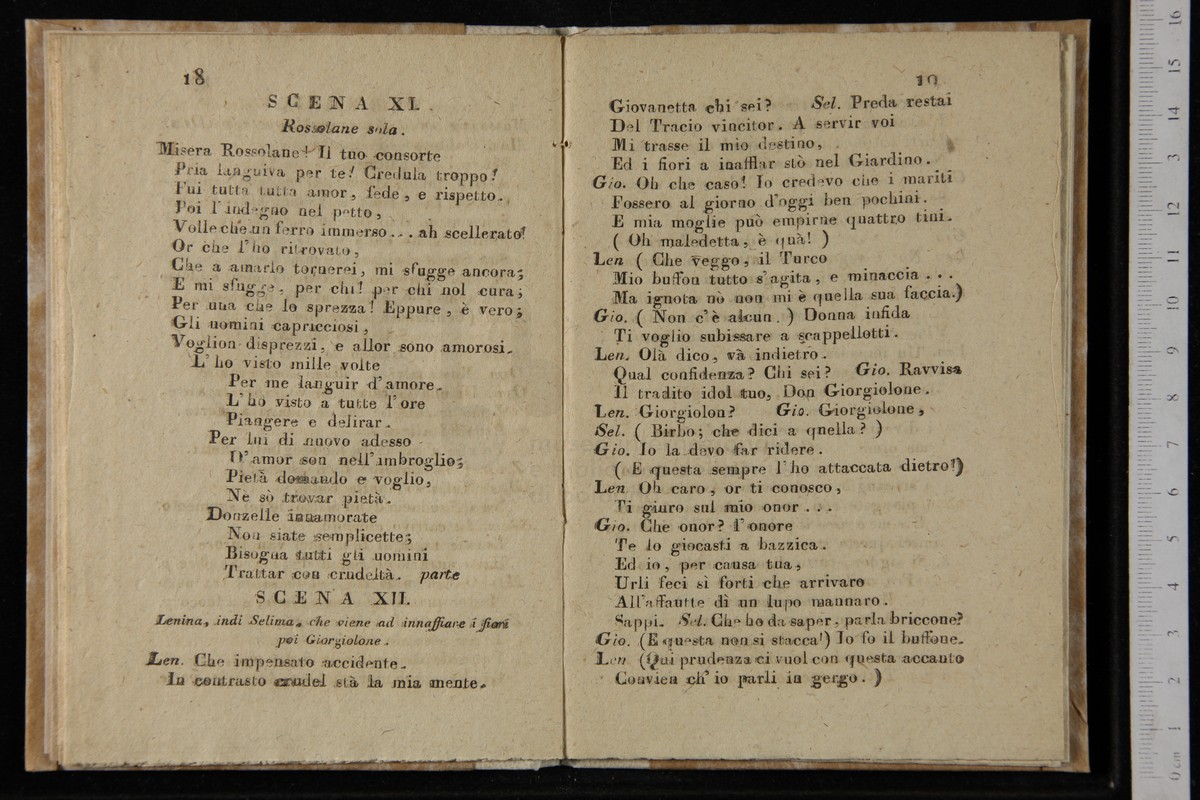 18
SCENA XI.
Rossolane sola.
Misera Rossolane! Il tuo consorte
Pria languiva per te! Credula troppo!
Fui tutta tutta amor, fede, e rispetto.
Poi l'indegno nel petto,
Volle che un ferro immerso... ah scellerato!
Or che l'ho ritrovato,
Che a amarlo tornerei, mi sfugge ancora;
E mi sfugge, per chi! per chi nol cura;
Per una che lo sprezza! Eppure, è vero;
Gli uomini capricciosi,
Voglion disprezzi, e allor sono amorosi.
L'ho visto mille volte
Per me languir d'amore.
L'hò visto a tutte l'ore
Piangere e delirar.
Per lui di nuovo adesso
D'amor son nell'imbroglio;
Pietà domando e voglio,
Nè sò trovar pietà.
Donzelle innamorate
Non siate semplicette;
Bisogna tutti gli uomini
Trattar con crudeltà. parte
SCENA XII.
Lenina, indi Selima, che viene ad innaffiare i fiori
poi Giorgiolone.
Len. Che impensato accidente.
In contrasto crudel stà la mia mente.
19
Giovanetta chi sei? Sel. Preda restai
Del Tracio vincitor. A servir voi
Mi trasse il mio destino,
Ed i fiori a inafflar stò nel Giardino.
Gio. Oh che caso! Io credevo che i mariti
Fossero al giorno d'oggi ben pochini.
E mia moglie può empirne quattro tini.
( Oh maledetta, è quà! )
Len ( Che veggo, il Turco
Mio buffon tutto s'agita, e minaccia...
Ma ignota nò non mi è quella sua faccia.)
Gio. ( Non c'è alcun. ) Donna infida
Ti voglio subissare a scappellotti.
Len. Olà dico, và indietro.
Qual confidenza? Chi sei? Gio. Ravvisa
Il tradito idol tuo, Don Giorgiolone.
Len. Giorgiolon? Gio. Giorgiolone,
Sel. ( Birbo; che dici a quella? )
Gio. Io la devo far ridere.
( E questa sempre l'ho attaccata dietro!)
Len Oh caro, or ti conosco,
Ti giuro sul mio onor...
Gio. Che onor? l'onore
Te lo giocasti a bazzica.
Ed io, per causa tua,
Urli feci sì forti che arrivaro
All'affautte di un lupo mannaro.
Sappi. Sel. Che ho da saper, parla briccone?
Gio. (E questa non si stacca!) Io fo il buffone.
Len (Qui prudenza ci vuol con questa accanto
Convien ch'io parli in gergo. )
0 cm 1 2 3 4 5 6 7 8 9 10 11 12 13 14 15 16